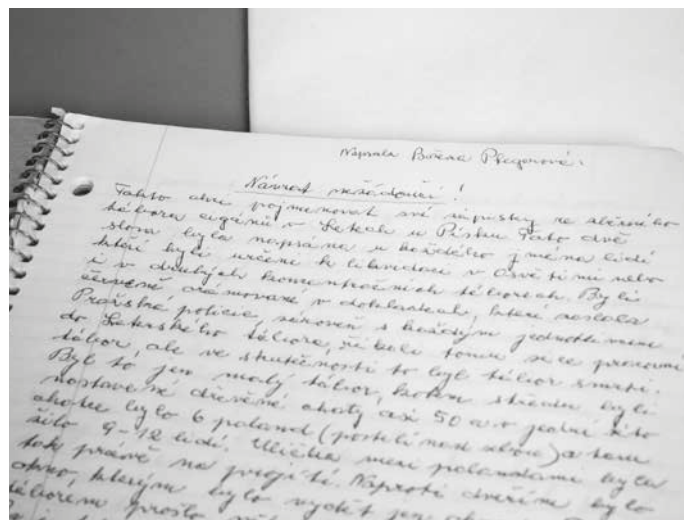 Napsala Božena Pflegerová:
Návrat nežádoucí!
Takto chci pojmenovat své zápisky ze sběrného
tábora cigánů v Letech u Písku. Tato dvě
slova byla napsána u každého jména lidí
kteří byli určeni k likvidaci v Osvětimi nebo
i v druhých koncentračních táborech. Byli
červeně orámované v dokladech, které zaslala
Pražská policie, zároveň s každým jednotlivcem
do Letského tábora, ač bylo tomu sice pracovní
tábor, ale ve skutečnosti to byl tábor smrti.
Byl to jen malý tábor, kolem středu byli
nastavené dřevěné chaty asi 50 a v jedné této
chatce bylo 6 paland (postelí nad sebou) a tam
žilo 9-12 lidí. Ulička mezi palandami byla
tak právě na projití. Naproti dveřím bylo
okno, kterým bylo vidět jen
táborem prošlo